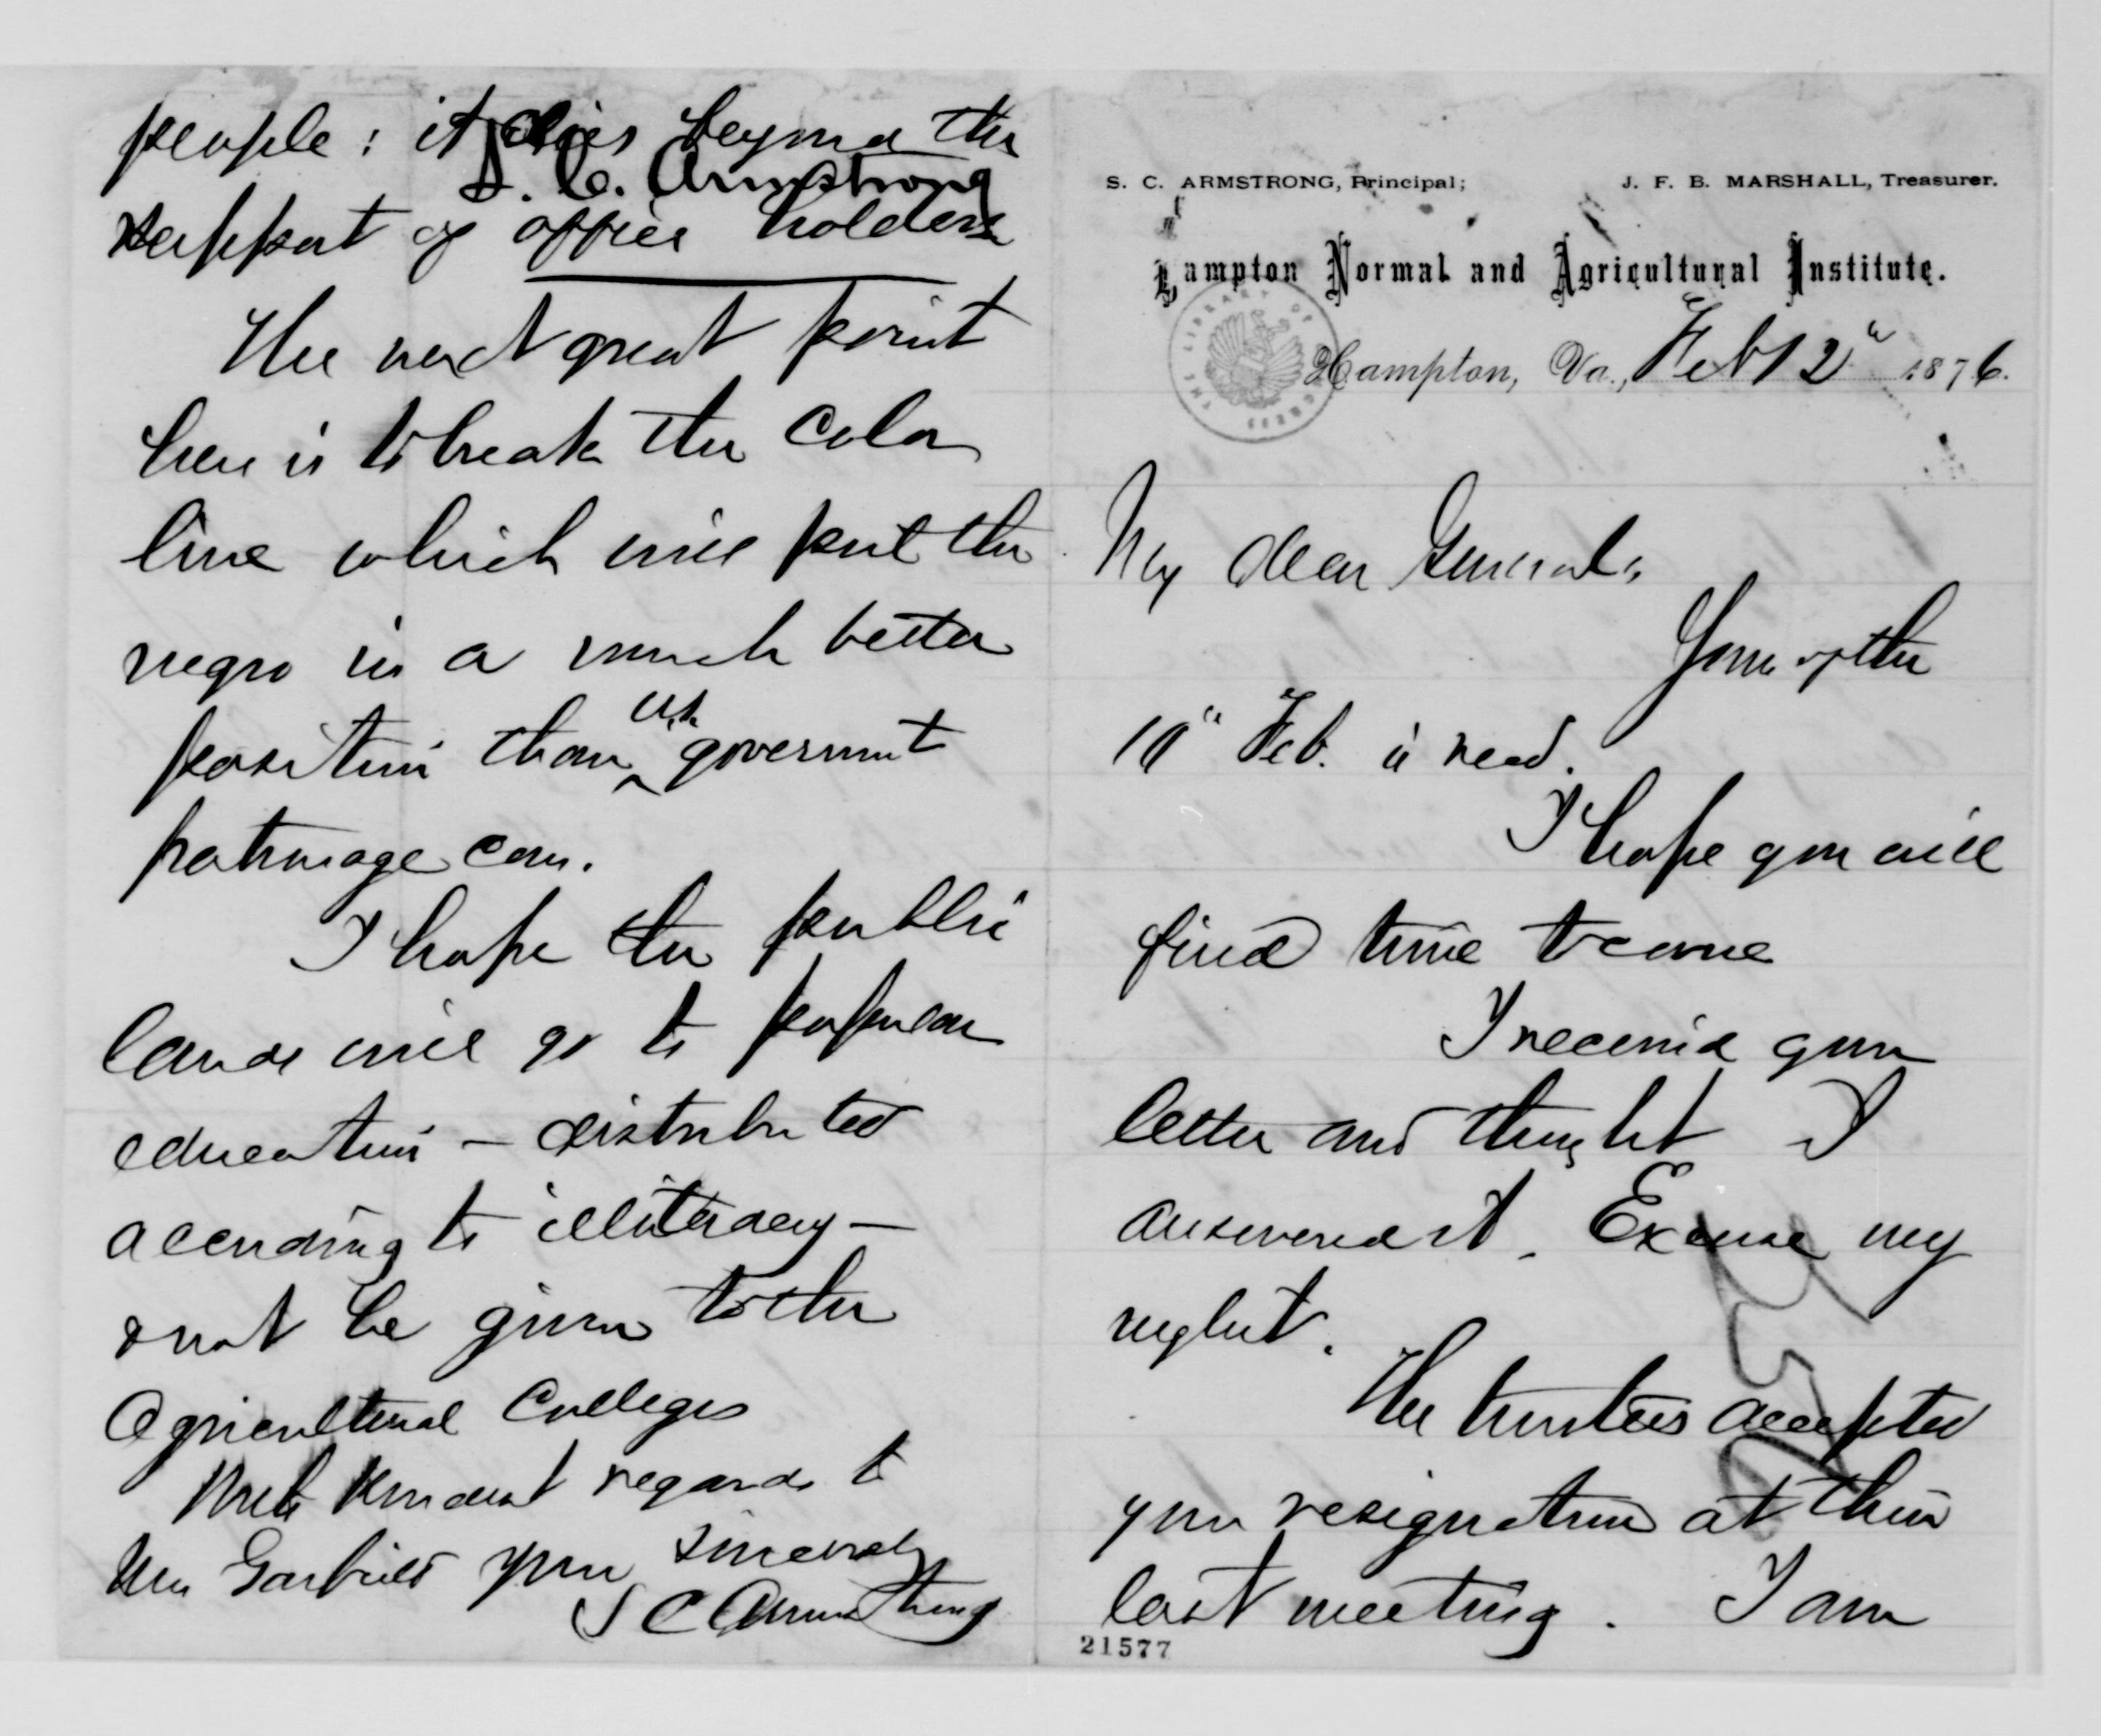 S. C. ARMSTRONG, Principal;
J. F. B. MARSHALL, Treasurer.
Hampton Normal and Agricultural Institute.
THE LIBRARY OF CONGRESS
Hampton, Va., Feb 12" 1876.
My dear General,
Your of the
10" Feb. is recd.
I hope you will
find time to come
I received your
letter and thought I
answered it. Excuse my
neglect.
The trustees accepted
your resignation at their
last meeting. I am
21577
people: it lies beyond the
S. C. Armstrong
support of office holders
The next great point
here is to break the color
line which will put the
negro in a much better
position than
government
patronage can.
I hope the public
lands will go to popular
education — distributed
according to illiteracy —
& not be given to the
Agricultural Colleges
With kindest regards to
Mrs Garfield your sincerely
S C Armstrong